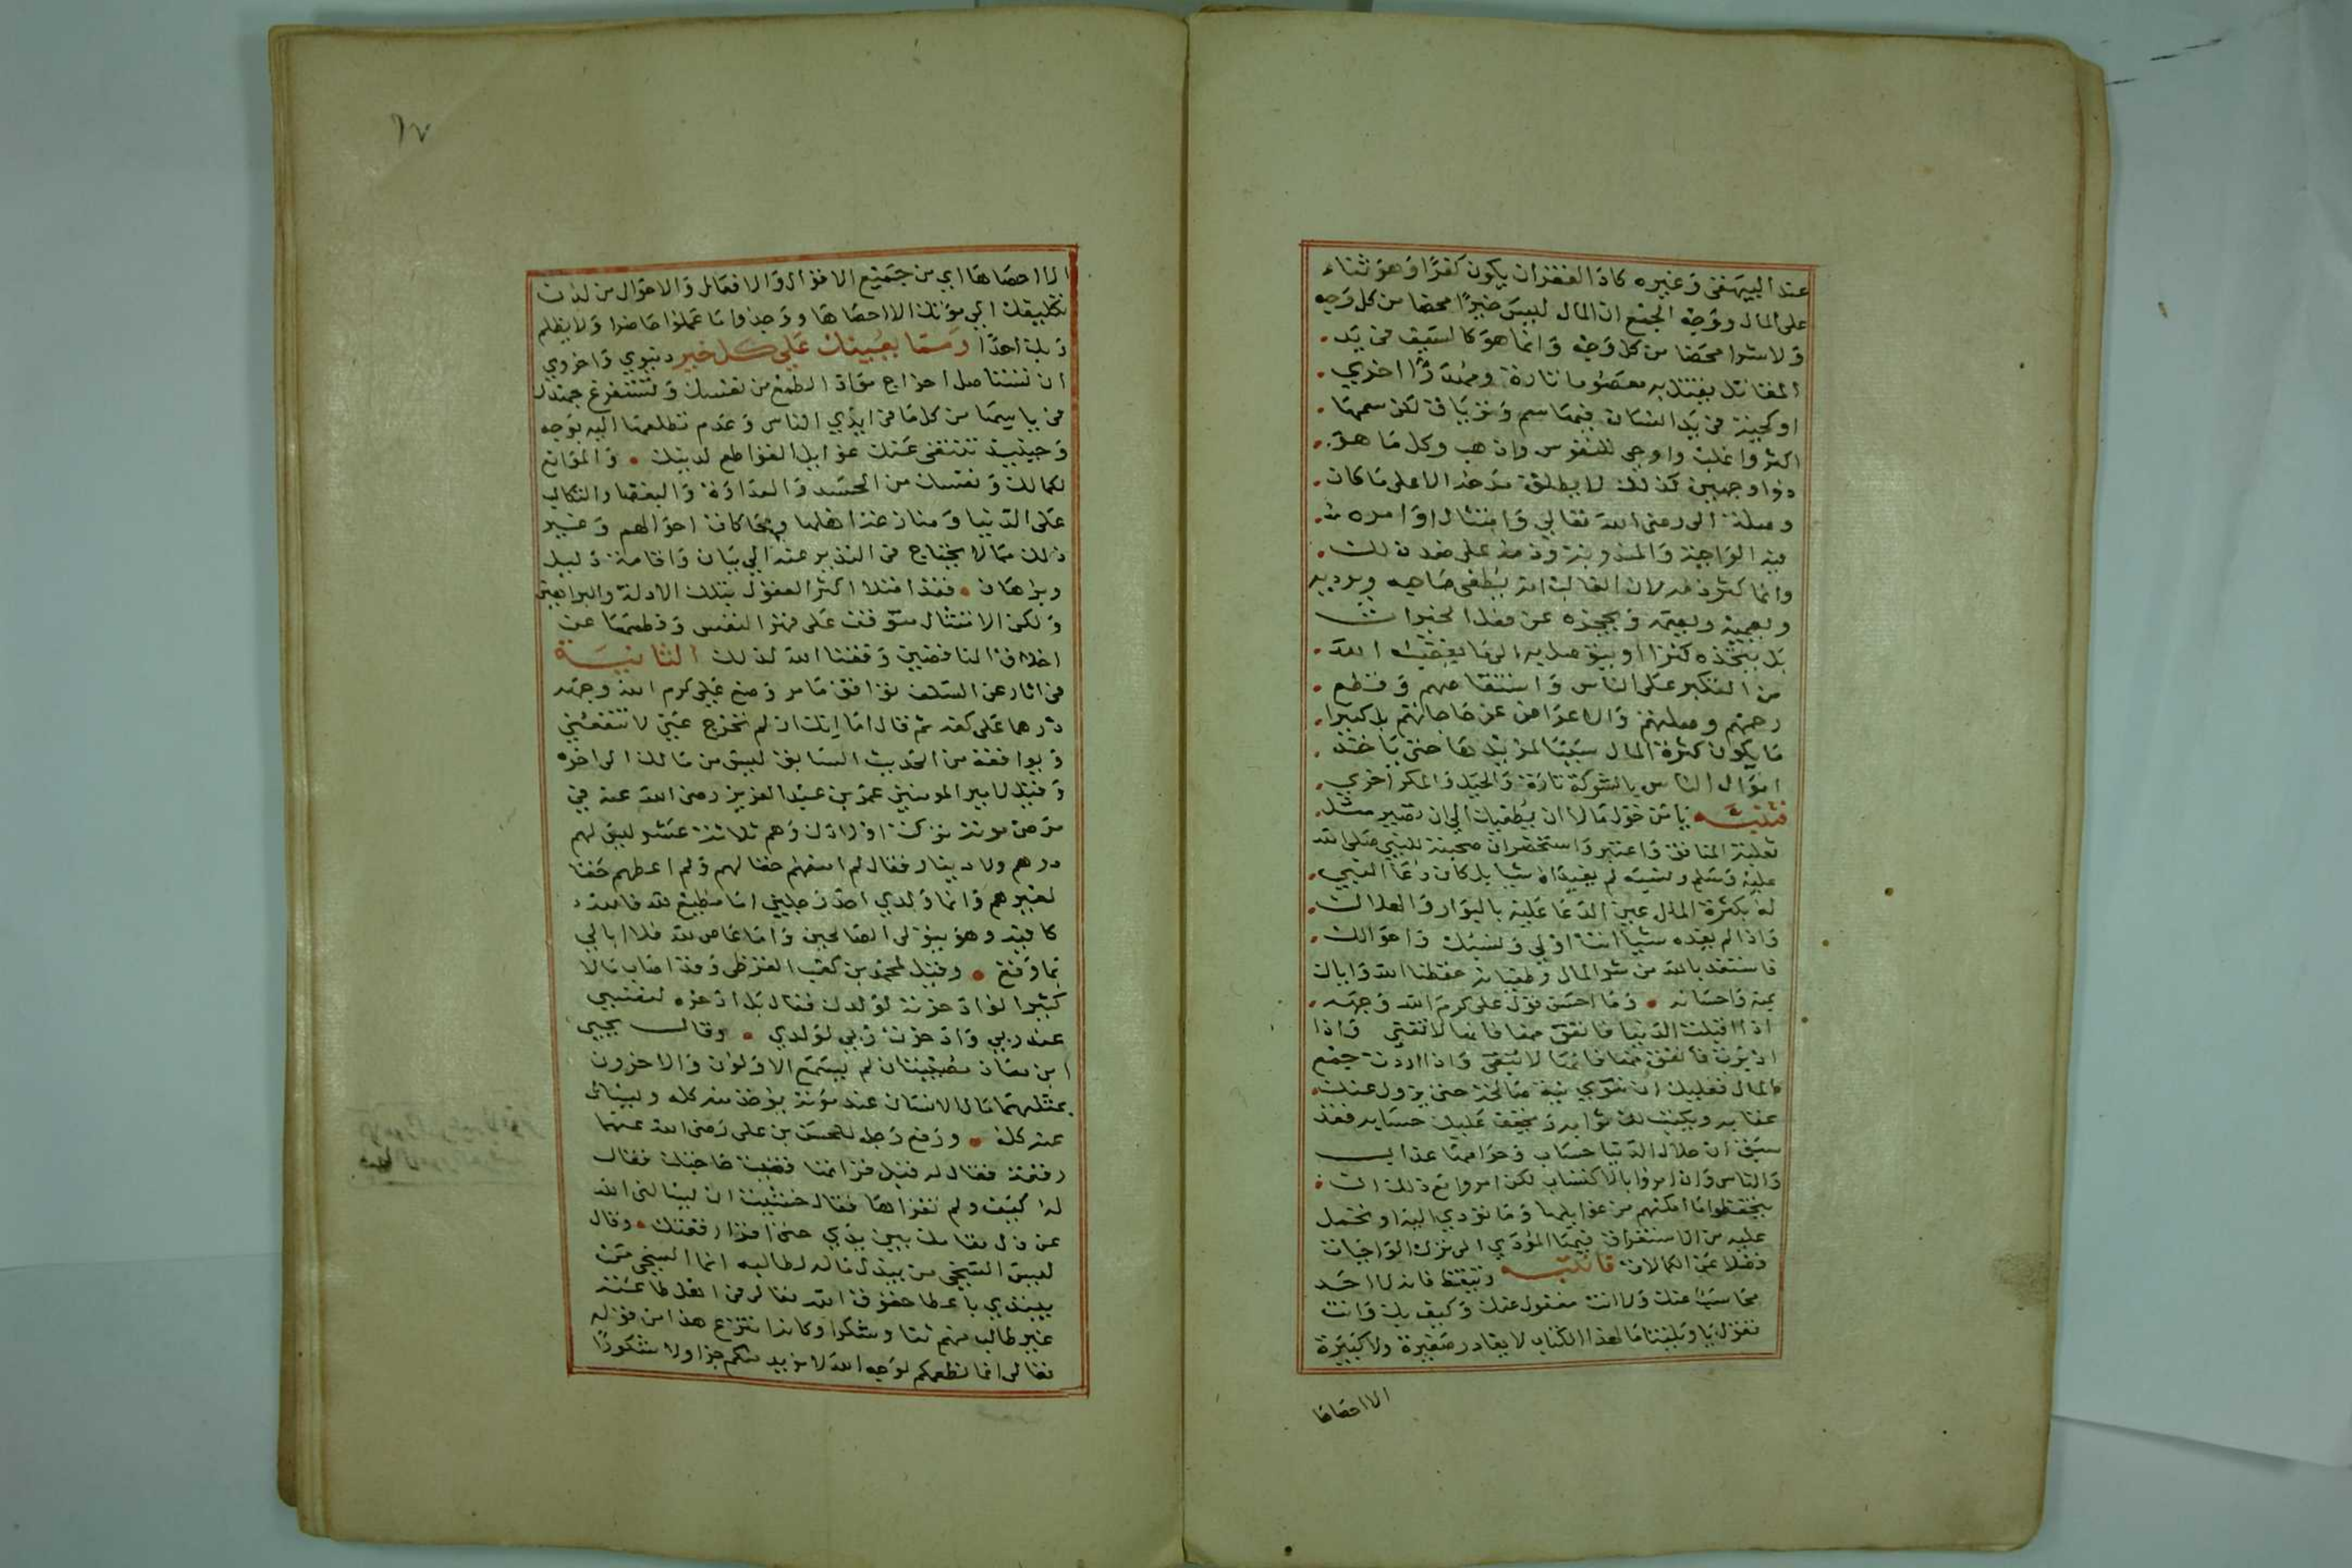 عند البيهقي وغيره كاد الفقر ان يكون كفرا وهو ثناء
على المال ووجه الجمع ان المال ليس خيرا محضا من كل وجه
ولا شرا محضا من كل وجه وانما هو كالسيف في يد
المقاتل يقتل به معصوما تارة ومهدرا اخري
او كحية في يد انسان فيها سم وترياق لكن سمها
اكثر واغلب واوحى للنفوس واذهب وكل ما هو
ذوا وجهين كذلك لا يطلق مدحه الا على ما كان
وصلة الى رضى الله تعالى وامتثال اوامره
فيه الواجبة والمندوبة وذمه على ضد ذلك
وانما كثر ذمه لان الغالب انه يطغى صاحبه ويرديه
ويعميه ويصمه ويحجزه عن فعل الخيرات
بل يتخذه كنزا او يتوصل به الى ما يغضب الله
من التكبر على الناس واستنقاصهم وقطع
رحمهم وصلتهم والاعراض عن حاجاتهم بل كثيرا
ما يكون كثرة المال سببا لمزيدها حتى ياخذ
اموال الناس بالشوكة تارة والحيل والمكر اخري
فتنبه يا من خول مالا ان يطغيك الى ان تصير مثل
ثعلبة المنافق واعتبر واستحضر ان صحبته للنبي صلى الله
عليه وسلم لم يفيداه شيا بل كان دعا النبي
له بكثرة المال عين الدعا عليه بالبوار والهلاك
واذا لم يفده شيا انت اولي ونسبك واحوالك
فاستعذ بالله من شر المال وطغيانه حفظنا الله واياك
بمنه واحسانه وما احسن قول على كرم الله وجهه
اذا اقبلت الدنيا فانفق منها فانها لا تفنى واذا
ادبرت فانفق منها فانها لا تبقى واذا اردت جمع
المال فعليك ان تنوي نية صالحة حتى يزول عنك
عقابه ويكتب لك ثوابه ويخفف عليك حسابه فقد
سبق ان حلال الدنيا حساب وحرامها عذاب
والناس وان امروا بالاكتساب لكن امروا مع ذلك ان
يتحفظوا ما امكنهم من غوايلها وما تؤدي اليه او تحمل
عليه من الاستغراق فيها المؤدي الى ترك الواجبات
فضلا عن الكمالات فانتبه وتيقظ فانه لا احد
محاسب عنك ولا انت مغفول عنك وكيف بك وانت
تقول يا ويلتنا مال هذا الكتاب لا يغادر صغيرة ولا كبيرة
الا احصاها
١٧
الا احصاها اي من جميع الاقوال والافعال والاحوال من لدن
تكليفك الى موتك الا احصاها ووجدوا ما عملوا حاضرا ولا يظلم
ربك احدا ومما يعينك على كل خير دنيوي واخروي
ان تستاصل اخراج مواد الطمع من نفسك وتستفرغ جهدك
في ياسها من كل ما في ايدي الناس وعدم تطلعها اليه بوجه
وحينيذ تنتفى عنك غوايل القواطع لدينك والموانع
لكمالك ونفسك من الحسد والعداوة والبغضا والتكالب
على الدنيا ومنازعة اهلها ومحاكاة احوالهم وغير
ذلك مما لا يحتاج في التدبير عنه الى بيان واقامة دليل
وبرهان فقد امتلا اكثر العقول بتلك الادلة والبراهين
ولكن الامتثال متوقف على قهر النفس وفطمها عن
اخلاق الناقصين وفقنا الله لذلك الثانية
في اثار عن السلف توافق ما مر وضع على كرم الله وجهه
درهما على كفه ثم قال اما انك ان لم تخرج عني لا تنفعني
ويوافقه من الحديث السابق ليس من مالك الى اخره
وقيل لامير المومنين عمر بن عبد العزيز رضى الله عنه في
مرض موته تركت اولادك وهم ثلاثة عشر ليس لهم
درهم ولا دينار فقال لم امنعهم حقا لهم ولم اعطهم حقا
لغيرهم وانما ولدي احد رجلين اما مطيع لله فالله
كافيه وهو يتولى الصالحين واما عاص لله فلا ابالي
بما وقع وقيل لمحمد بن كعب القرظى وقد اصاب مالا
كثيرا لو ادخرته لولدك فقال بل ادخره لنفسي
عند ربي وادخرت ربي لولدي وقال يحيى
ابن معاذ مصيبتان لم يسمع الاولون والاخرون
بمثلهما مال الانسان عند موته يؤخذ منه كله ويسئل
عنه كله ورفع رجل للحسن بن على رضى الله عنهما
رقعة فقال له قبل قراتها قضيت حاجتك فقال
له كيف ولم تقراها فقال خشيت ان يسالنى الله
عن ذل مقامك بين يدي حتى اقرا رقعتك وقال
ليس السخي من يبذل ماله لطالبه انما السخي من
يبتدي باعطا حقوق الله تعالى في اهل طاعته
غير طالب منهم ثنا وشكرا وكانه انتزع هذا من قوله
تعالى انما نطعمكم لوجه الله لا نريد منكم جزا ولا شكورا